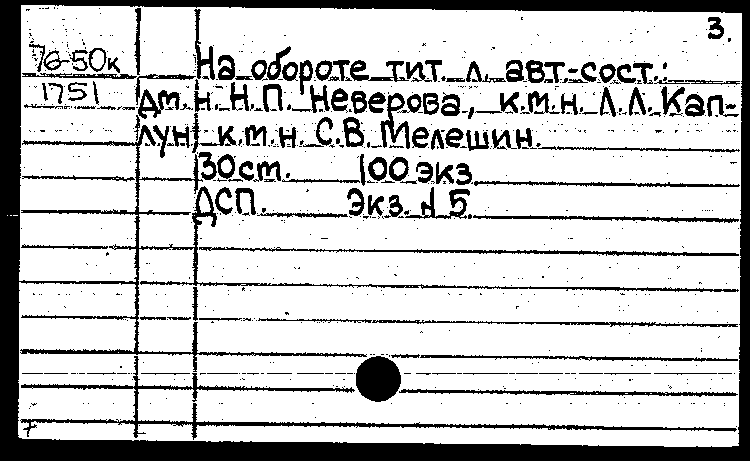 3.
76-50к
На обороте тит. л. авт-сост.:
1751
дм.н. Н.П. Неверова, к.м.н. Л.Л. Кап-
лун, к.м.н. С.В. Мелешин.
30 ст. 100 экз.
ДСП. Экз. № 5.